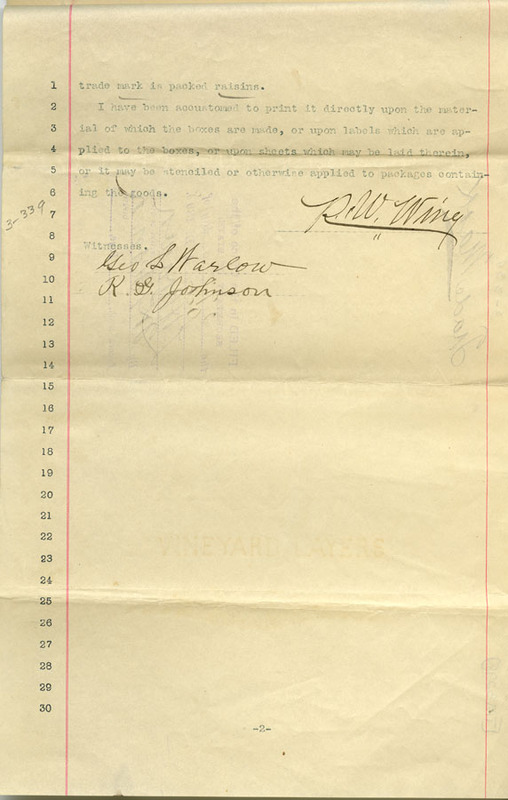 1 trade mark is packed raisins.
2 I have been accustomed to print it directly upon the mater-
3 ial of which the boxes are made, or upon labels which are ap-
4 plied to the boxes, or upon sheets which may be laid therein,
5 or it may be stenciled or otherwise applied to packages contain-
6 ing the goods.
3-339
7 R. W. Wing
8 Witnesses.
9 Geo L Warlow
10 R. G. Johnson
11
12
13
14
15
16
17
18
19
20
21
22
VINEYARD LAYERS
23
24
25
26
27
28
29
30
-2-